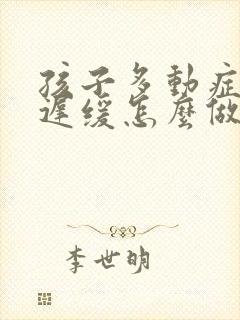 孩子多動症
遲緩怎麼做
李世明